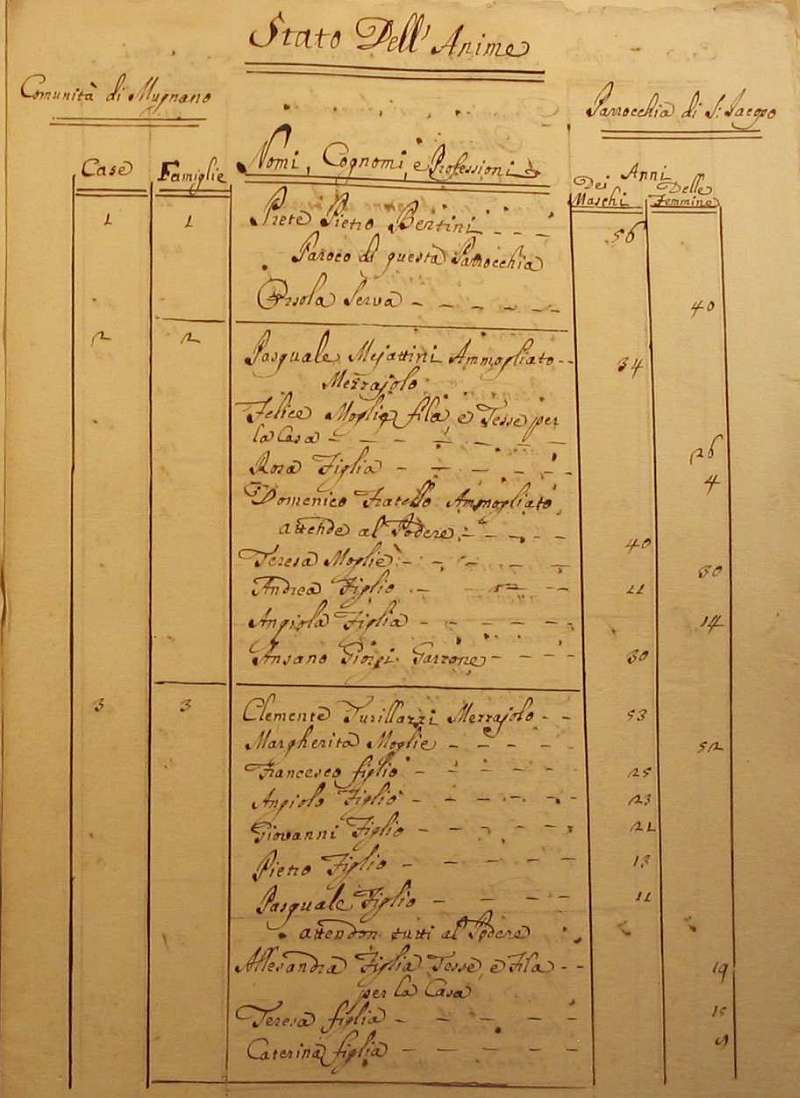 Stato Dell' Anime
Comunità di Mugnano
Parrocchia di S: Jacopo
Case
Famiglie
Nomi, Cognomi, e Professioni
Anni
Dei Maschi
Delle Femmine
1 1 Prete Pietro Bentini 56
Paroco di questa Parrocchia
Orsola Serva 40
2 2 Pasquale Ammogliato 34
Mezzajolo
Felice Moglie fila, e Tesse per
la Casa 26
Rosa Figlia 4
Domenico Fratello Ammogliato
attende al Podere 40
Teresa Moglie 30
Andrea Figlio 11
Angiola Figlia 14
Ansano Giorgi Garzone 30
3 3 Clemente Turillazzi Mezzajolo 53
Margherita Moglie 52
Francesco figlio 25
Angiolo Figlio 23
Giovanni Figlio 21
Pietro Figlio 13
Pasquale Figlio 11
attendon tutti al Podere
Allesandra Figlia Tesse, e Fila 19
per la Casa
Teresa figlia 15
Caterina figlia 9